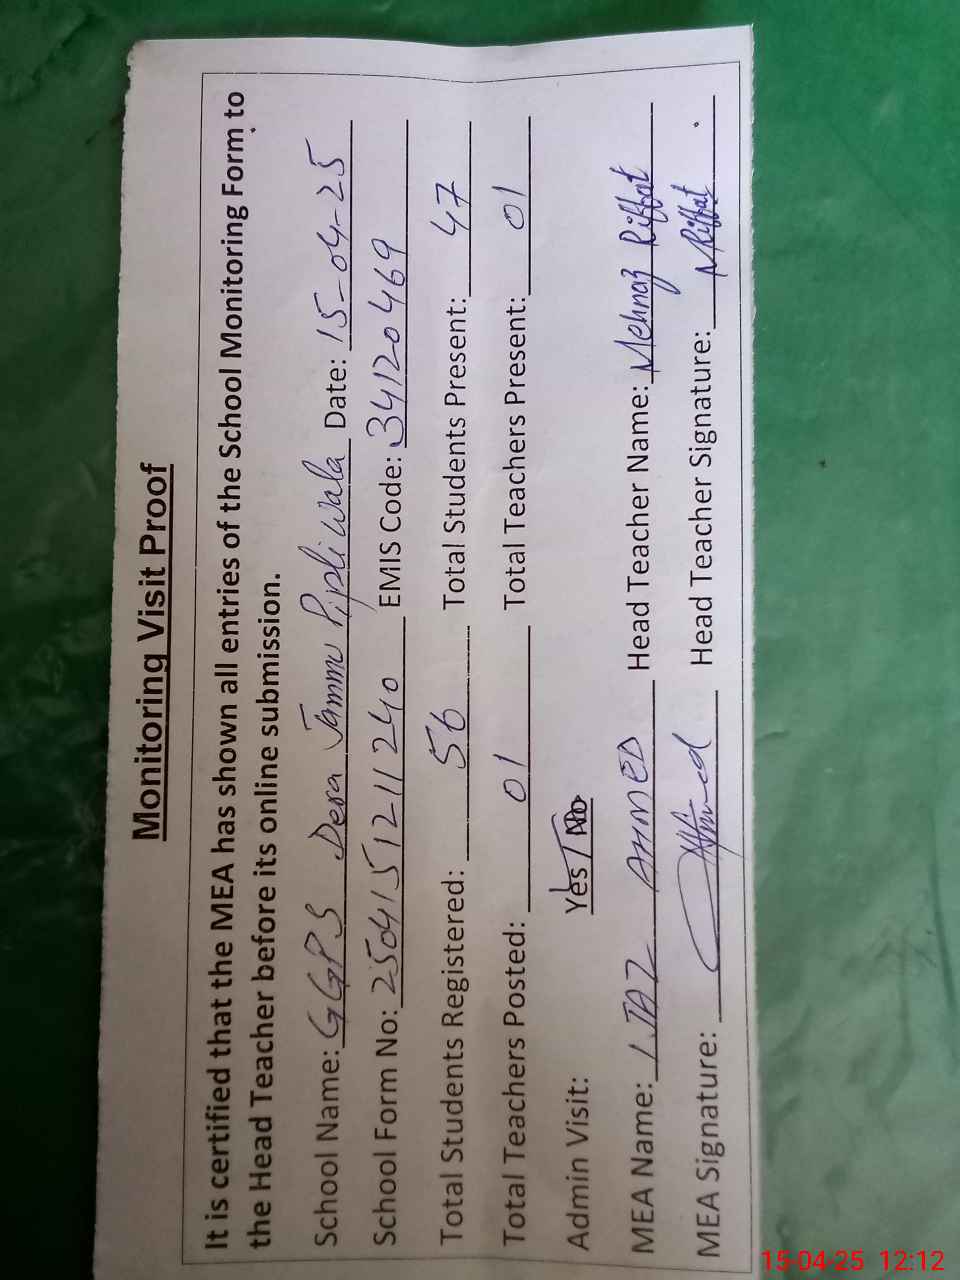 Monitoring Visit Proof
It is certified that the MEA has shown all entries of the School Monitoring Form to
the Head Teacher before its online submission.
School Name: GGPS Dera Jammu Pipli Wala Date: 15-04-25
School Form No: 2504151211240 EMIS Code: 34120469
Total Students Registered: 56 Total Students Present: 47
Total Teachers Posted: 01 Total Teachers Present: 01
Admin Visit: Yes / No
MEA Name: IJAZ AHMED Head Teacher Name: Mehnaz Riffat
MEA Signature: Ahmed Head Teacher Signature: MRiffat
15-04-25 12:12